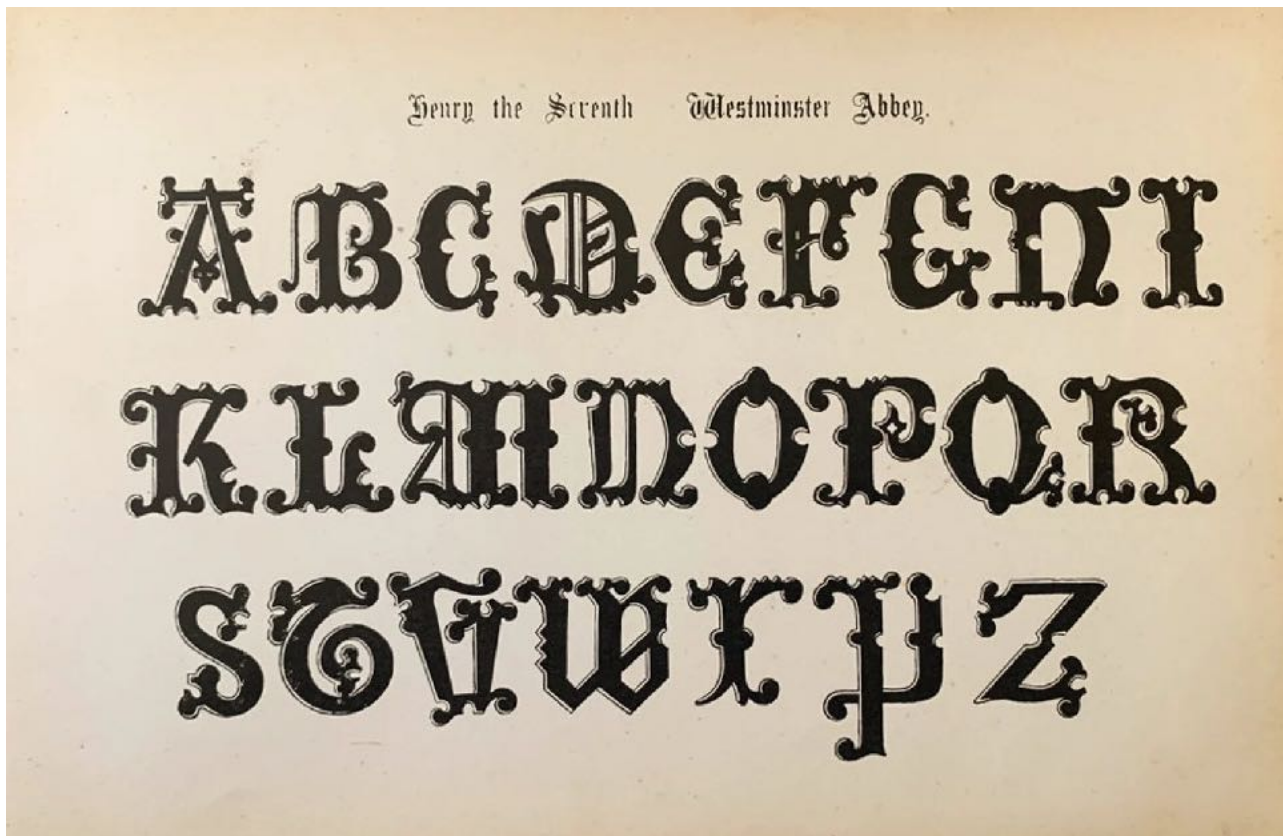 Henry the Seventh Westminster Abbey.
A B C D E F G H I
K L M N O P Q R
S T V W X Y Z